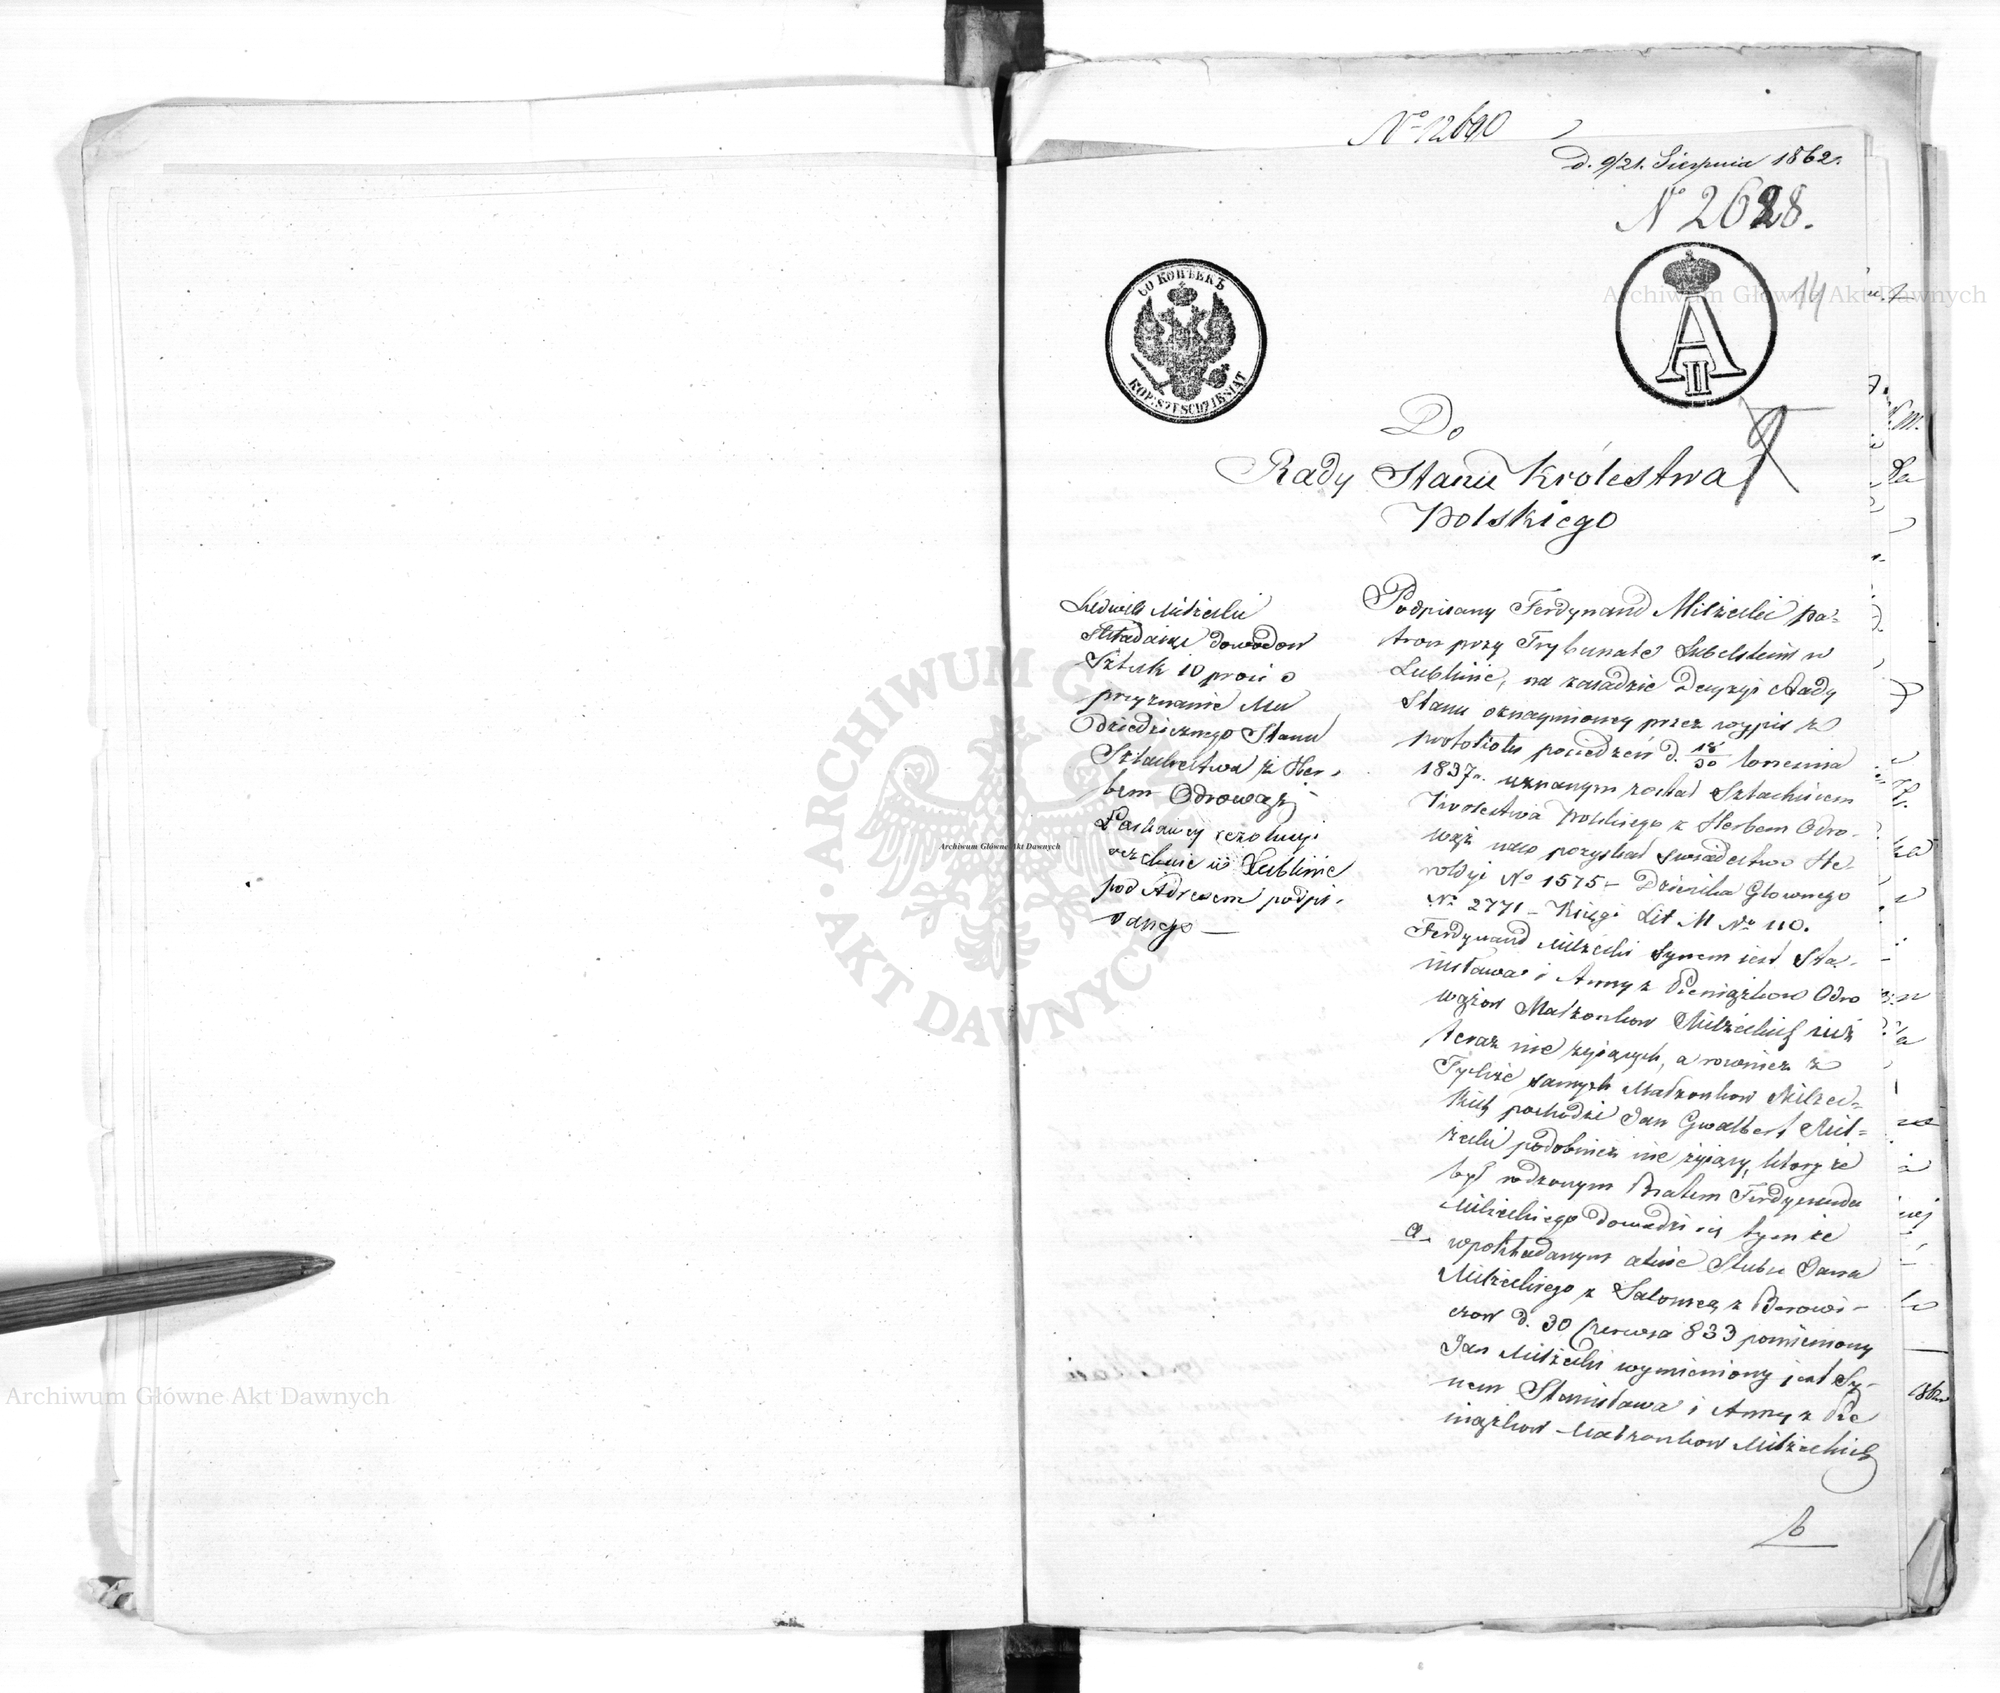 No 12690
d. 9/21. Sierpnia 1862.
No 2628.
14
60 КОПѢЕКЪ
KOP: SZESCDZIESIAT
A II
Do
Rady Stanu Królestwa
Polskiego
Ludwik Milżecki
Składając dowodow
Sztuk 10 prosi o
przyznanie Mu
Dziedzicznego Stanu
Szlachectwa z Her-
bem Odrowąż
Łaskawej rezolucyi
oczekuie w Lublinie
pod Adresem podpi-
sanego —
Podpisany Ferdynand Milżecki pa-
tron przy Trybunale Lubelskim w
Lublinie, na zasadzie Decyzyi Rady
Stanu oznaymionej przez wypis z
protokołu posiedzeń d. 18/30 Czerwca
1837 r. uznanym został Szlachcicem
Krolestwa Polskiego z Herbem Odro-
wąż naco pozyskał swiadectwo He-
roldyi No 1575 – Dziennika Głownego
No 2771 – Księgi Lit M No 110.
Ferdynand Milżecki synem iest Sta-
nisława i Anny z Pieniążkow Odro
wążow Małżonkow Milżeckich iuż
teraz nie żyiących, a rownież z
Tychże samych Małżonkow Milżec-
kich pochodzi Jan Gwalbert Mil-
żecki podobnież nie żyiący, ktory że
był rodzonym Bratem Ferdynanda
Milżeckiego dowodzi się tym że
a. wpokładanym akcie Slubu Jana
Milżeckiego z Salomeą z Berowi-
czow d. 30 Czerwca 833 pomieniony
Jan Milżecki wymieniony jest Sy-
nem Stanisława i Anny z Pie
niążkow Małżonkow Milżeckich
b
Archiwum Główne Akt Dawnych
ARCHIWUM GŁÓWNE AKT DAWNYCH
Archiwum Główne Akt Dawnych
Archiwum Główne Akt Dawnych